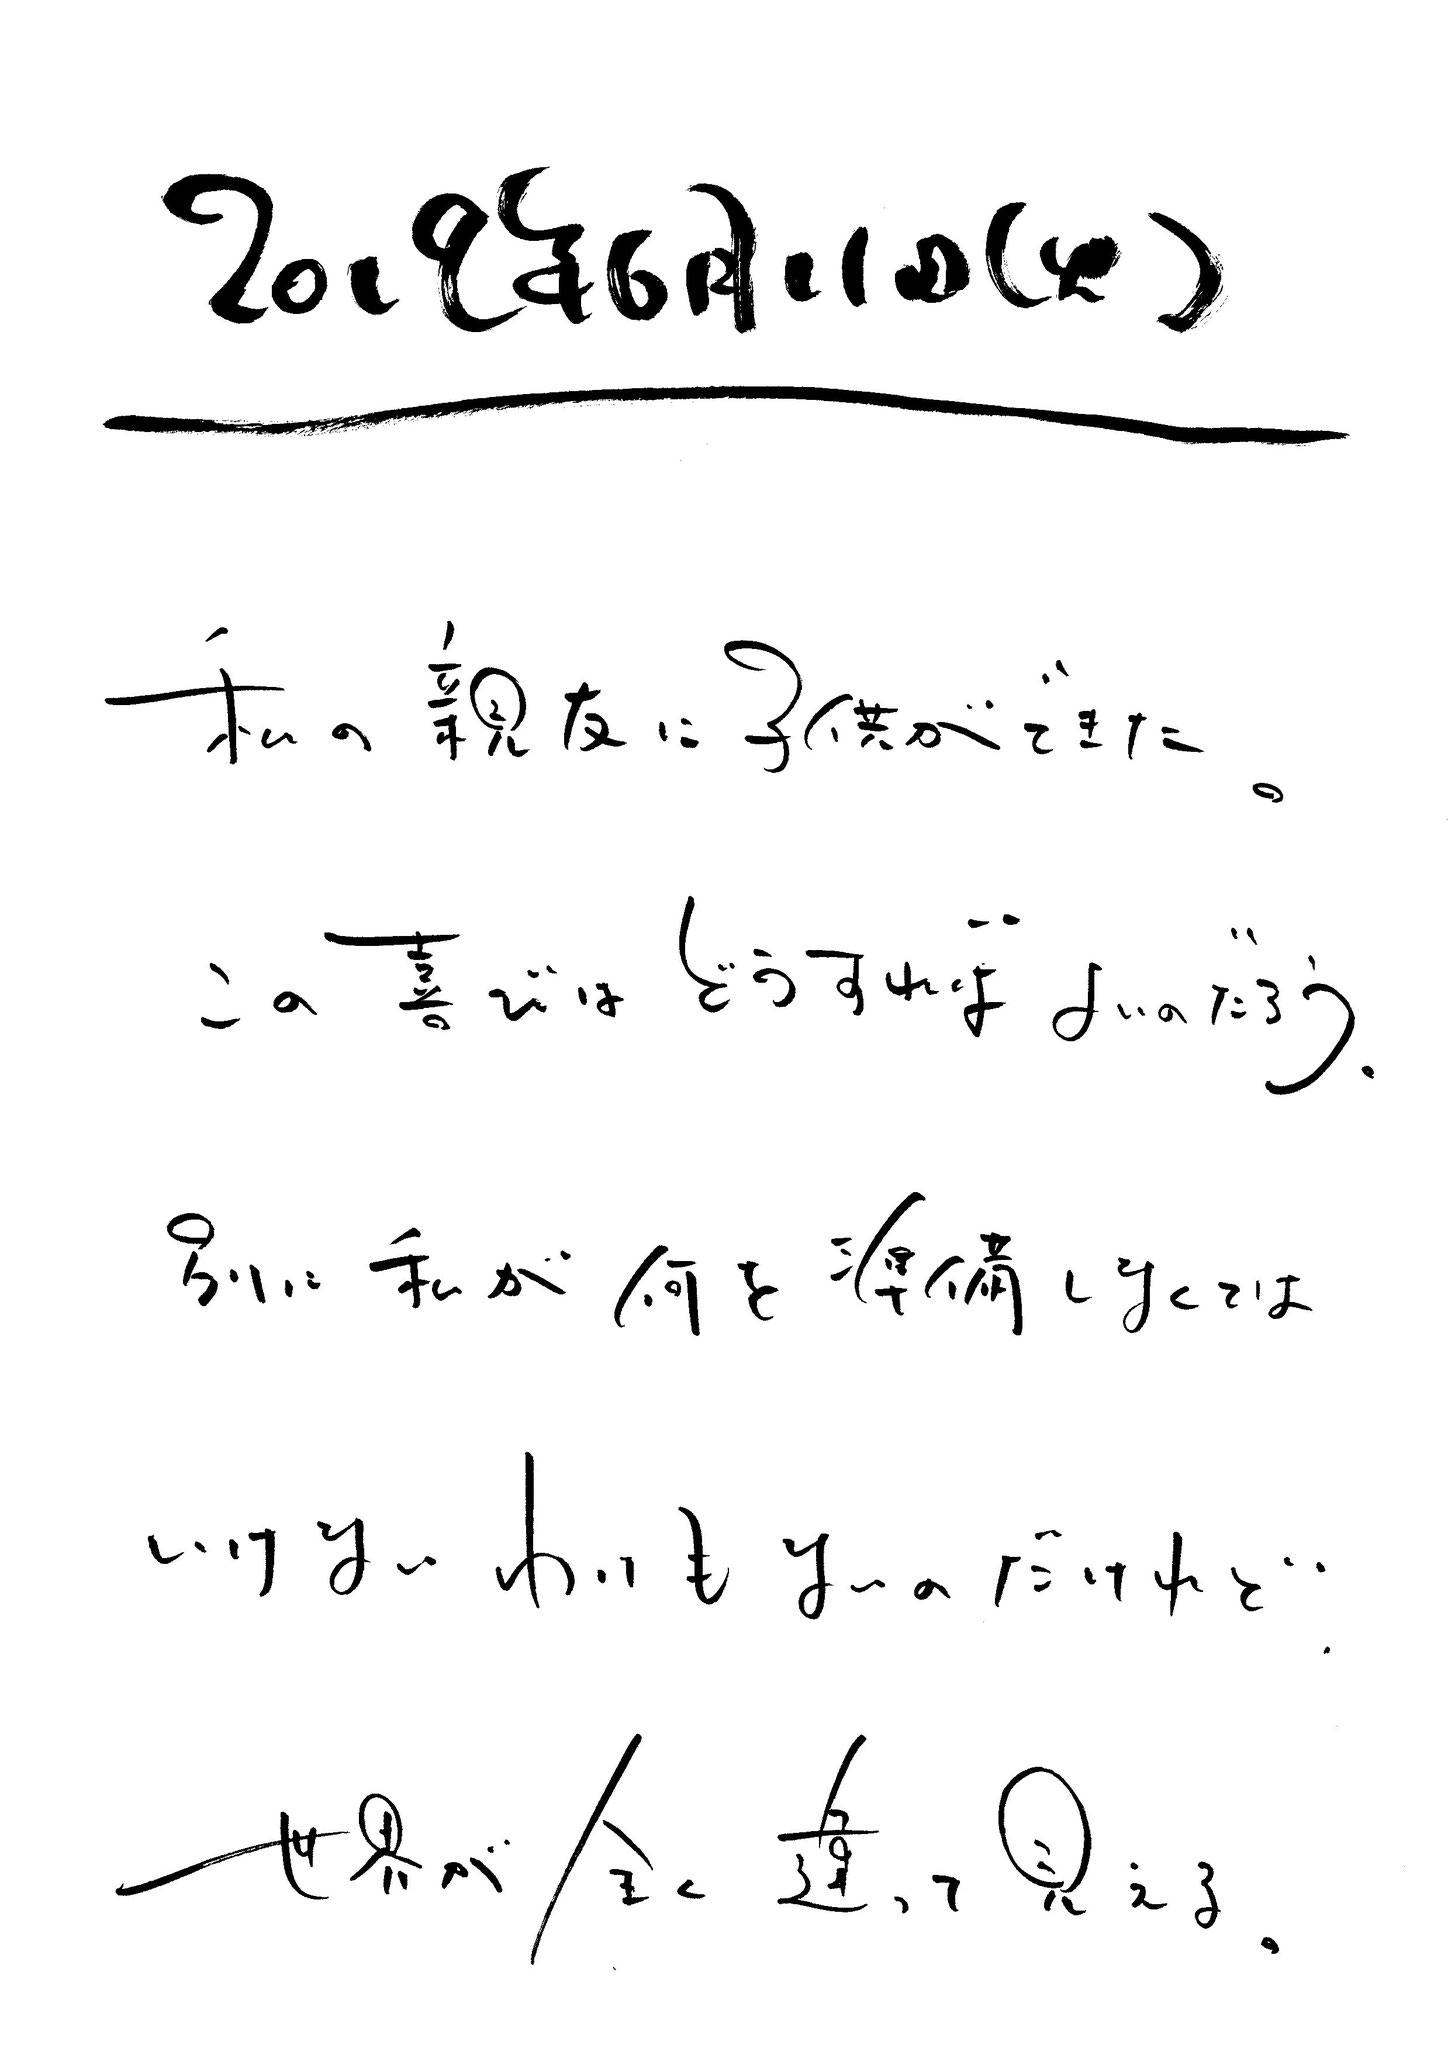 2019年6月11日(火)
私の親友に子供ができた。
この喜びはどうすればよいのだろう。
別に私が何を準備しなくては
いけないわけもないのだけれど…
世界が全く違って見える。